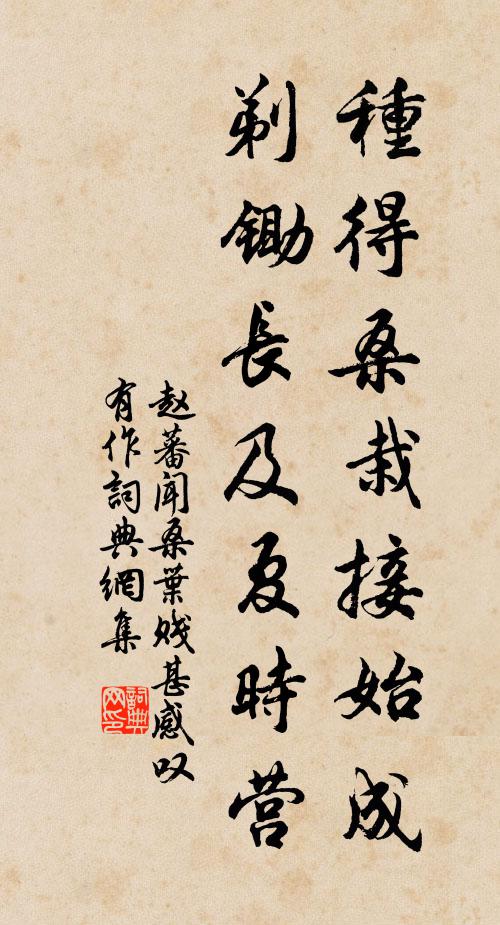 種得桑栽接始成
剃鋤長及夏時营
赵蕃闻桑葉贱甚感叹
有作詞典網集
詞典
网印